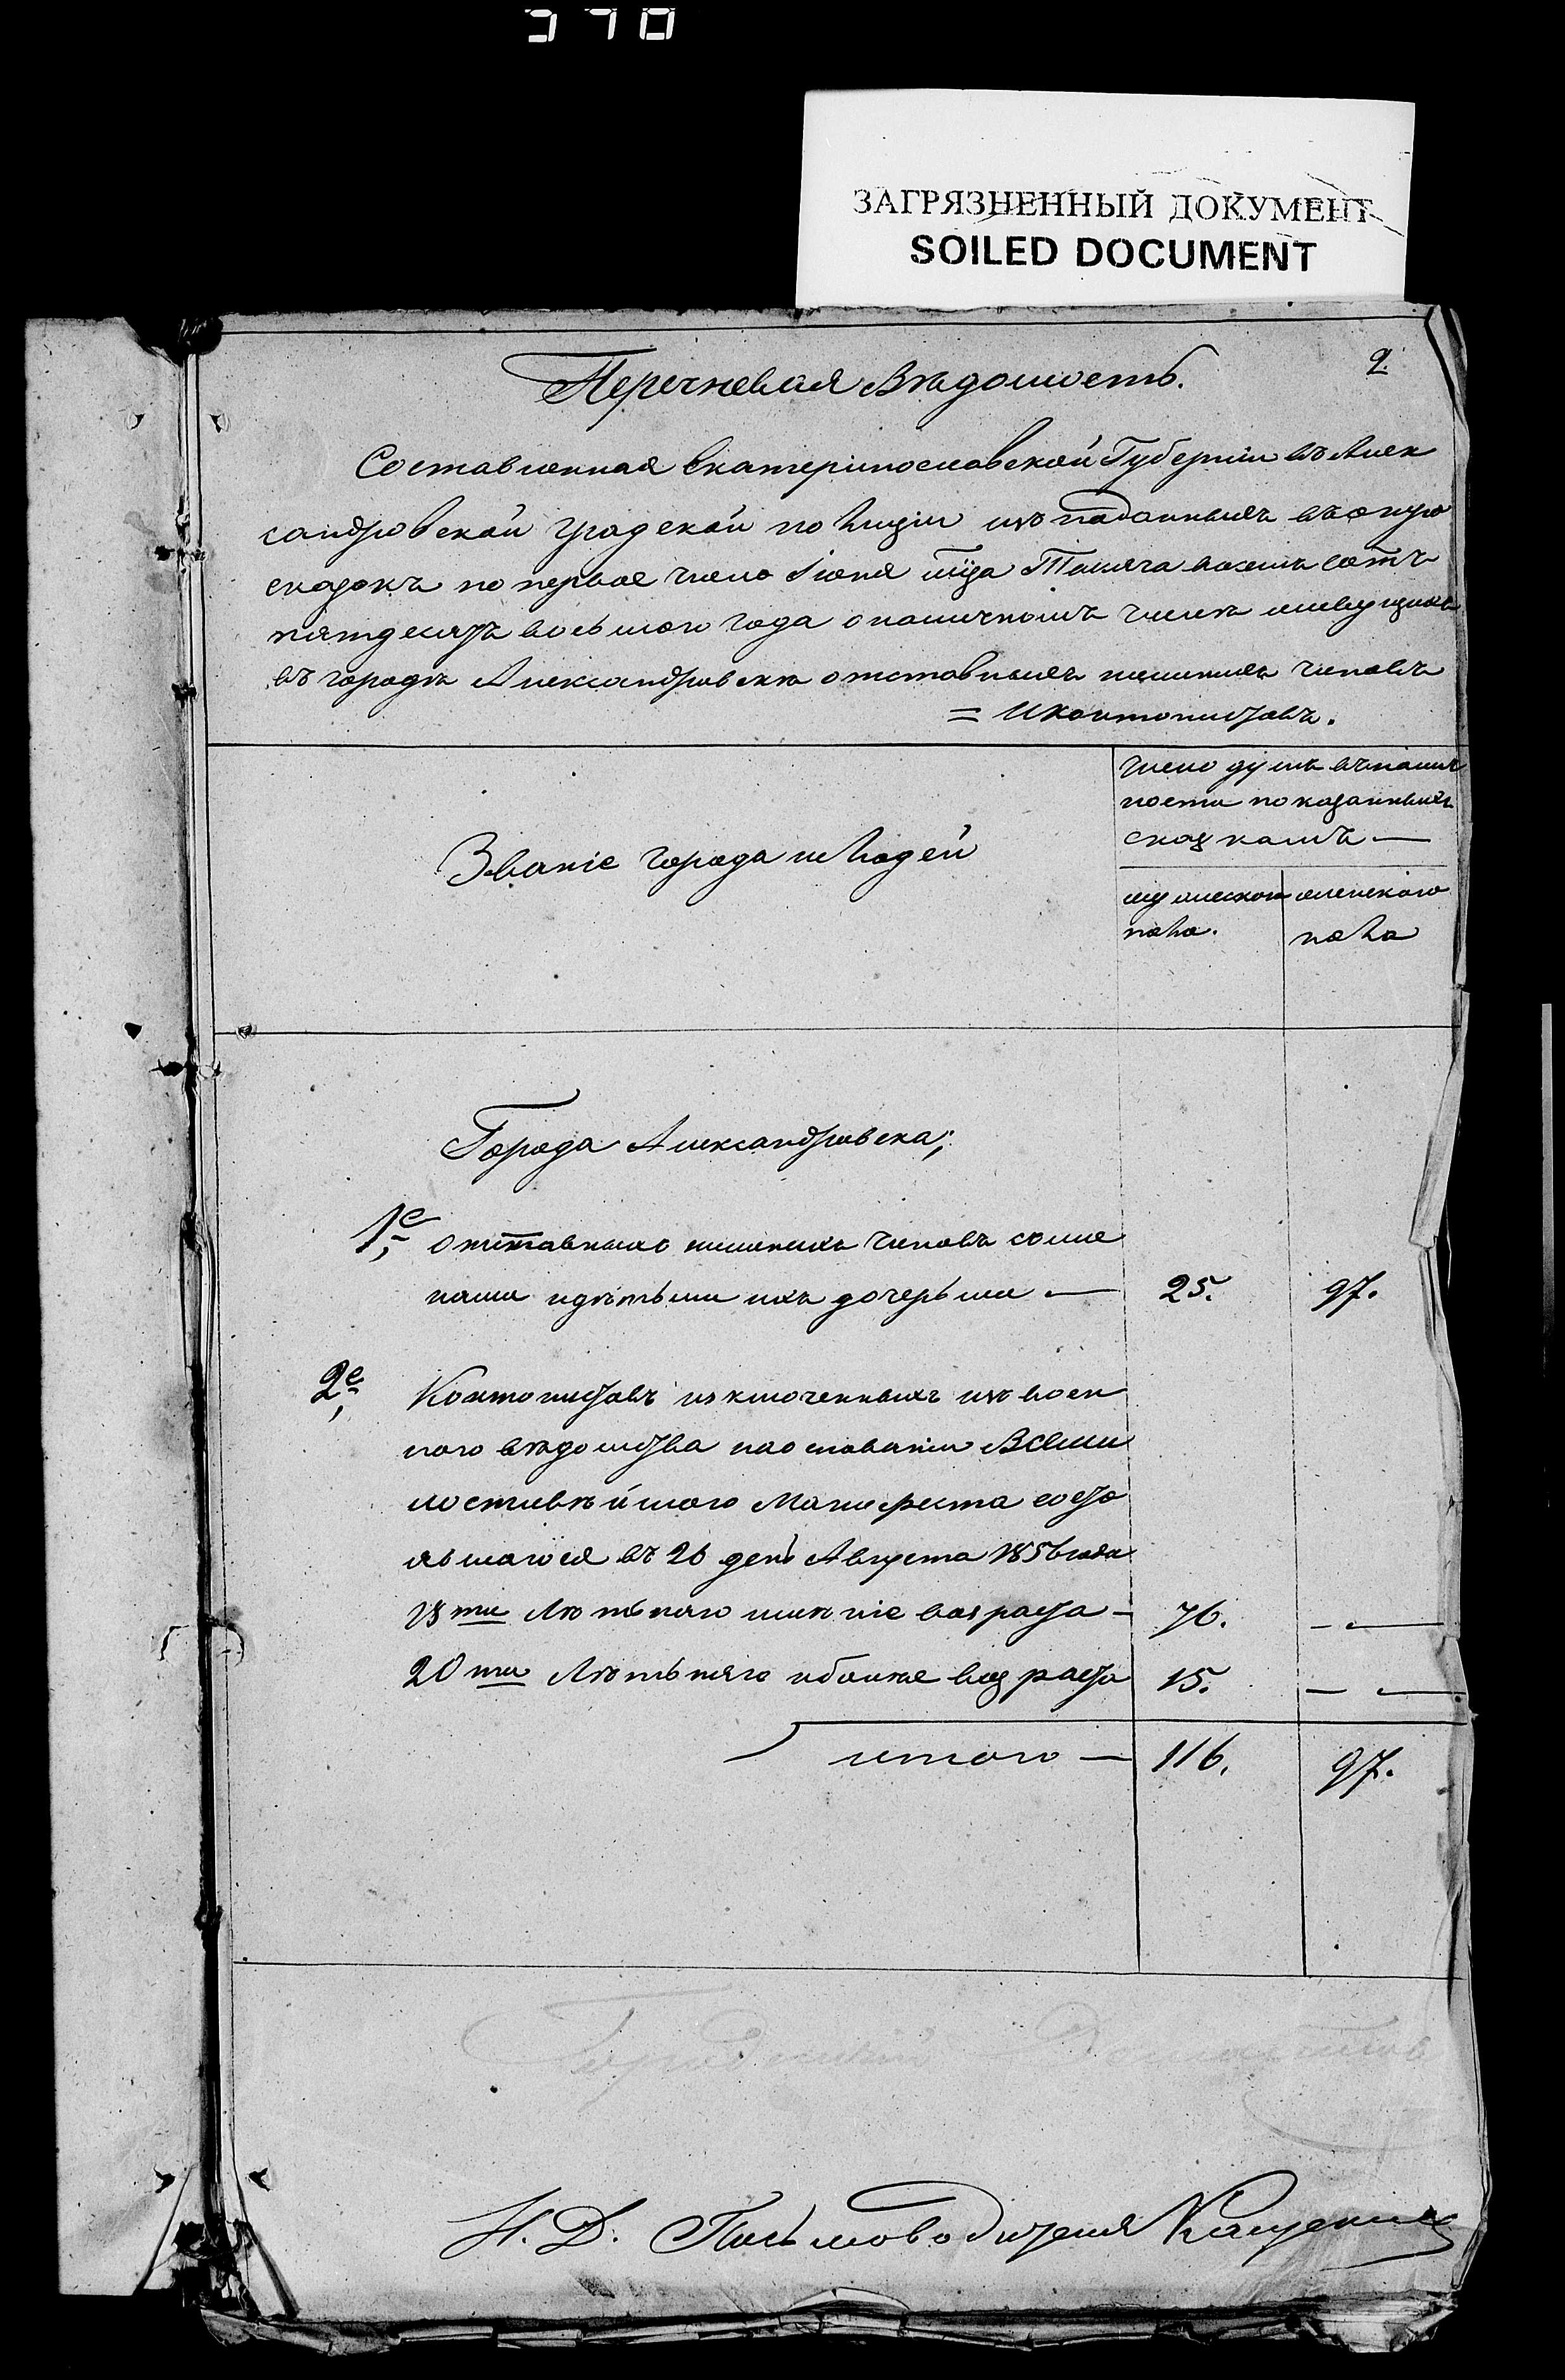 370
ЗАГРЯЗНЕННЫЙ ДОКУМЕНТ
SOILED DOCUMENT
2.
Перечневая Вѣдомость.
Составленная Екатеринославской Губерніи въ Алек
сандровской градской полиціи изъ поданныхъ въ оную
сказокъ по первое число Іюня мца Тысяча восемь сотъ
пятдесятъ восьмого года о наличномъ числѣ живущихъ
въ городѣ Александровскѣ отставныхъ нижнихъ чиновъ
= Икантонистовъ.
Званіе города и людей
Число душъ въ налич
ности по казаннымъ
сказкамъ —
мужескаго пола.
женскаго пола
Города Александровска;
1е, Отставныхъ нижнихъ чиновъ съ же
нами и дѣтьми ихъ дочерьми — 25. 97.
2е, Кантонистовъ изключенныхъ изъ воен
наго вѣдомства на основаніи Всеми
лостивѣйшаго Манифеста состо
явшагося въ 26 день Августа 1856 года
18ти Лѣтняго и менѣе возраста — 76. — —
20ти Лѣтьняго и болѣе возраста 15. — —
итого — 116. 97.
Городничій
И. Д. Письмоводителя